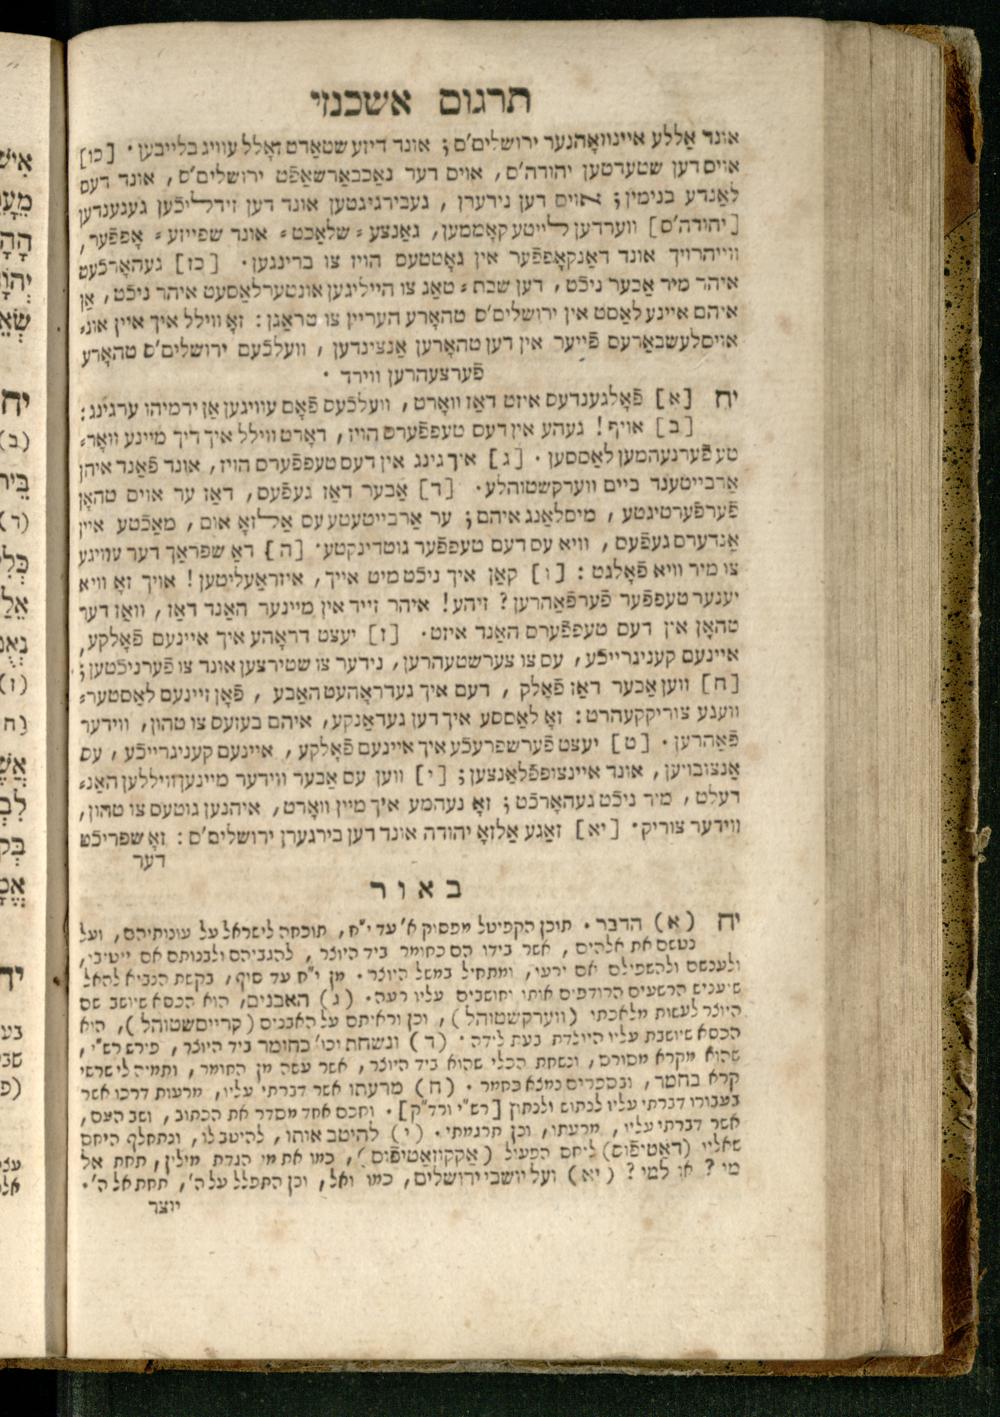 תרגום אשכנזי
אונד אַללע איינוואָהנער ירושלים'ס; אונד דיזע שטאַדט זאָלל עוויג בלייבען. [כו]
אויס דען שטעדטען יהודה'ס, אויס דער נאַכבאַרשאַפֿט ירושלים'ס, אונד דעם
לאַנדע בנימין; אויס דען נידערן, געבירגיגטען אונד דען זידליכֿען געגענדען
[יהודה'ס] ווערדען לייטע קאָממען, גאַנצע - שלאַכט - אונד שפייזע - אָפפֿער,
ווייהרויך אונד דאַנקאָפפֿער אין גאָטטעס הויז צו ברינגען. [כז] געהאָרכֿעט
איהר מיר אַבער ניכֿט, דען שבת - טאַג צו הייליגען אונטערלאַסעט איהר ניכֿט, אַן
איהם איינע לאַסט אין ירושלים'ס טהאָרע העריין צו טראַגן: זאָ ווילל איך איין אונ-
אויסלעשבאַרעס פֿייער אין דען טהאָרען אַנצינדען, וועלכֿעס ירושלים'ס טהאָרע
פֿערצעהרען ווירד.
יח [א] פֿאָלגענדעס איזט דאַז וואָרט, וועלכֿעס פֿאָם עוויגען אַן ירמיהו ערגינג:
[ב] אויף! געהע אין דעס טעפפֿערס הויז, דאָרט ווילל איך דיך מיינע וואָר-
טע פֿערנעהמען לאַססען. [ג] איך גינג אין דעס טעפפֿערס הויז, אונד פֿאַנד איהן
אַרבייטענד ביים ווערקשטוהלע. [ד] אַבער דאַז געפֿעס, דאַז ער אויס טהאָן
פֿערפֿערטיגטע, מיסלאַנג איהם; ער אַרבייטעטע עס אַלזאָ אום, מאַכֿטע איין
אַנדערס געפֿעס, וויא עס דעם טעפפֿער גוטדינקטע. [ה] דאַ שפראַך דער עוויגע
צו מיר וויא פֿאָלגט: [ו] קאַן איך ניכֿט מיט אייך, איזראַעליטען! אויך זאָ וויא
יענער טעפפֿער פֿערפֿאַהרען? זיהע! איהר זייד אין מיינער האַנד דאַז, וואַז דער
טהאָן אין דעס טעפפֿערס האַנד איזט. [ז] יעצט דראָהע איך איינעם פֿאָלקע,
איינעם קעניגרייכֿע, עס צו צערשטעהרען, נידער צו שטירצען אונד צו פֿערניכֿטען;
[ח] ווען אַבער דאַז פֿאָלק, דעם איך געדראָהעט האַבע, פֿאָן זיינעם לאַסטער-
וועגע צוריקקעהרט: זאָ לאַססע איך דען געדאַנקע, איהם בעזעס צו טהון, ווידער
פֿאַהרען. [ט] יעצט פֿערשפרעכֿע איך איינעם פֿאָלקע, איינעם קעניגרייכֿע, עס
אַנצובויען, אונד איינצופפֿלאַנצען; [י] ווען עס אַבער ווידער מיינען ווילללען האַנ-
דעלט, מיר ניכֿט געהאָרכֿט; זאָ נעהמע איך מיין וואָרט, איהנען גוטעס צו טהון,
ווידער צוריק. [יא] זאַגע אַלזאָ יהודה אונד דען בירגערן ירושלים'ס: זאָ שפריכֿט
דער
באור
יח (א) הדבר. תוכן הקפיטל מפסוק א' עד י"ח, תוכחה לישראל על עונותיהם, ועל
נטשם את אלהים, אשר בידו הם כחומר ביד היוצר, להגביהם ולבנותם אם ייטיבו,
ולענשם ולהשפילם אם ירעו, ומתחיל במשל היוצר. מן י"ח עד סוף, בקשת הנביא להאל
שיעניש הרשעים הרודפים אותו וחושבים עליו רעה. (ג) האבנים, הוא הכסא שיושב שם
היוצר לעשות מלאכתו (ווערקשטוהל), וכן וראיתם על האבנים (קרייסשטוהל), הוא
הכסא שיושבת עליו היולדת בעת לידה. (ד) ונשחת וכו' כחומר ביד היוצר, פירש רש"י,
שהוא מקרא מסורס, ונשחת הכלי שהוא ביד היוצר, אשר עשה מן החומר, ותמיה לי שרש"י
קרא בחמר, ובספרים נמצא כחמר. (ח) מרעתו אשר דברתי עליו, מרעות דרכו אשר
בעבורו דברתי עליו לנתוש ולנתוץ [רש"י ורד"ק]. וחכם אחד מסדר את הכתוב, ושב העם,
אשר דברתי עליו, מרעתו, וכן תרגמתי. (י) להיטב אותו, להיטב לו, ונתחלף היחס
שאליו (דאַטיפֿוס) ליחס הפעול (אַקקוזאַטיפֿוס), כמו את מי הגדת מילין, תחת אל
מי? או למי? (יא) ועל יושבי ירושלים, כמו ואל, וכן התפלל על ה', תחת אל ה'.
יוצר